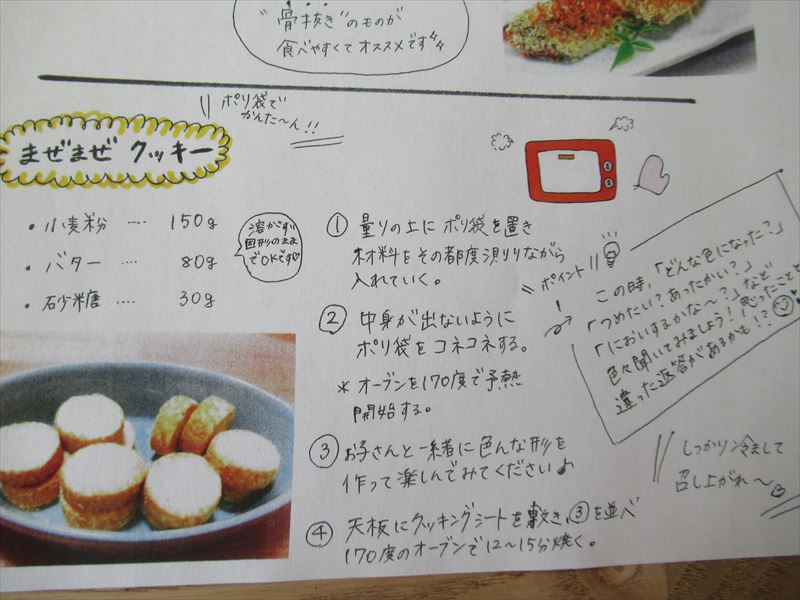 "骨抜き"のものが
食べやすくてオススメです
ポリ袋で
かんた〜ん!!
まぜまぜ クッキー
・小麦粉 ‥‥ 150g
・バター ‥‥ 80g
・砂糖 ‥‥ 30g
溶かさず
固形のまま
でOKです♡
① 量りの上に ポリ袋を置き
材料をその都度測りながら
入れていく。
② 中身が出ないように
ポリ袋をコネコネする。
* オーブンを170度で予熱
開始する。
③ お子さんと一緒に色んな形を
作って楽しんでみてください♪
④ 天板にクッキングシートを敷き、③を並べ
170度のオーブンで12〜15分焼く。
ポイント!!
この時、「どんな色になった?」
「つめたい?あったかい?」
「においするかな〜?」など
色々聞いてみましょう! 思ったことと
違った返答があるかも!?
しっかりン冷まして
召し上がれ〜